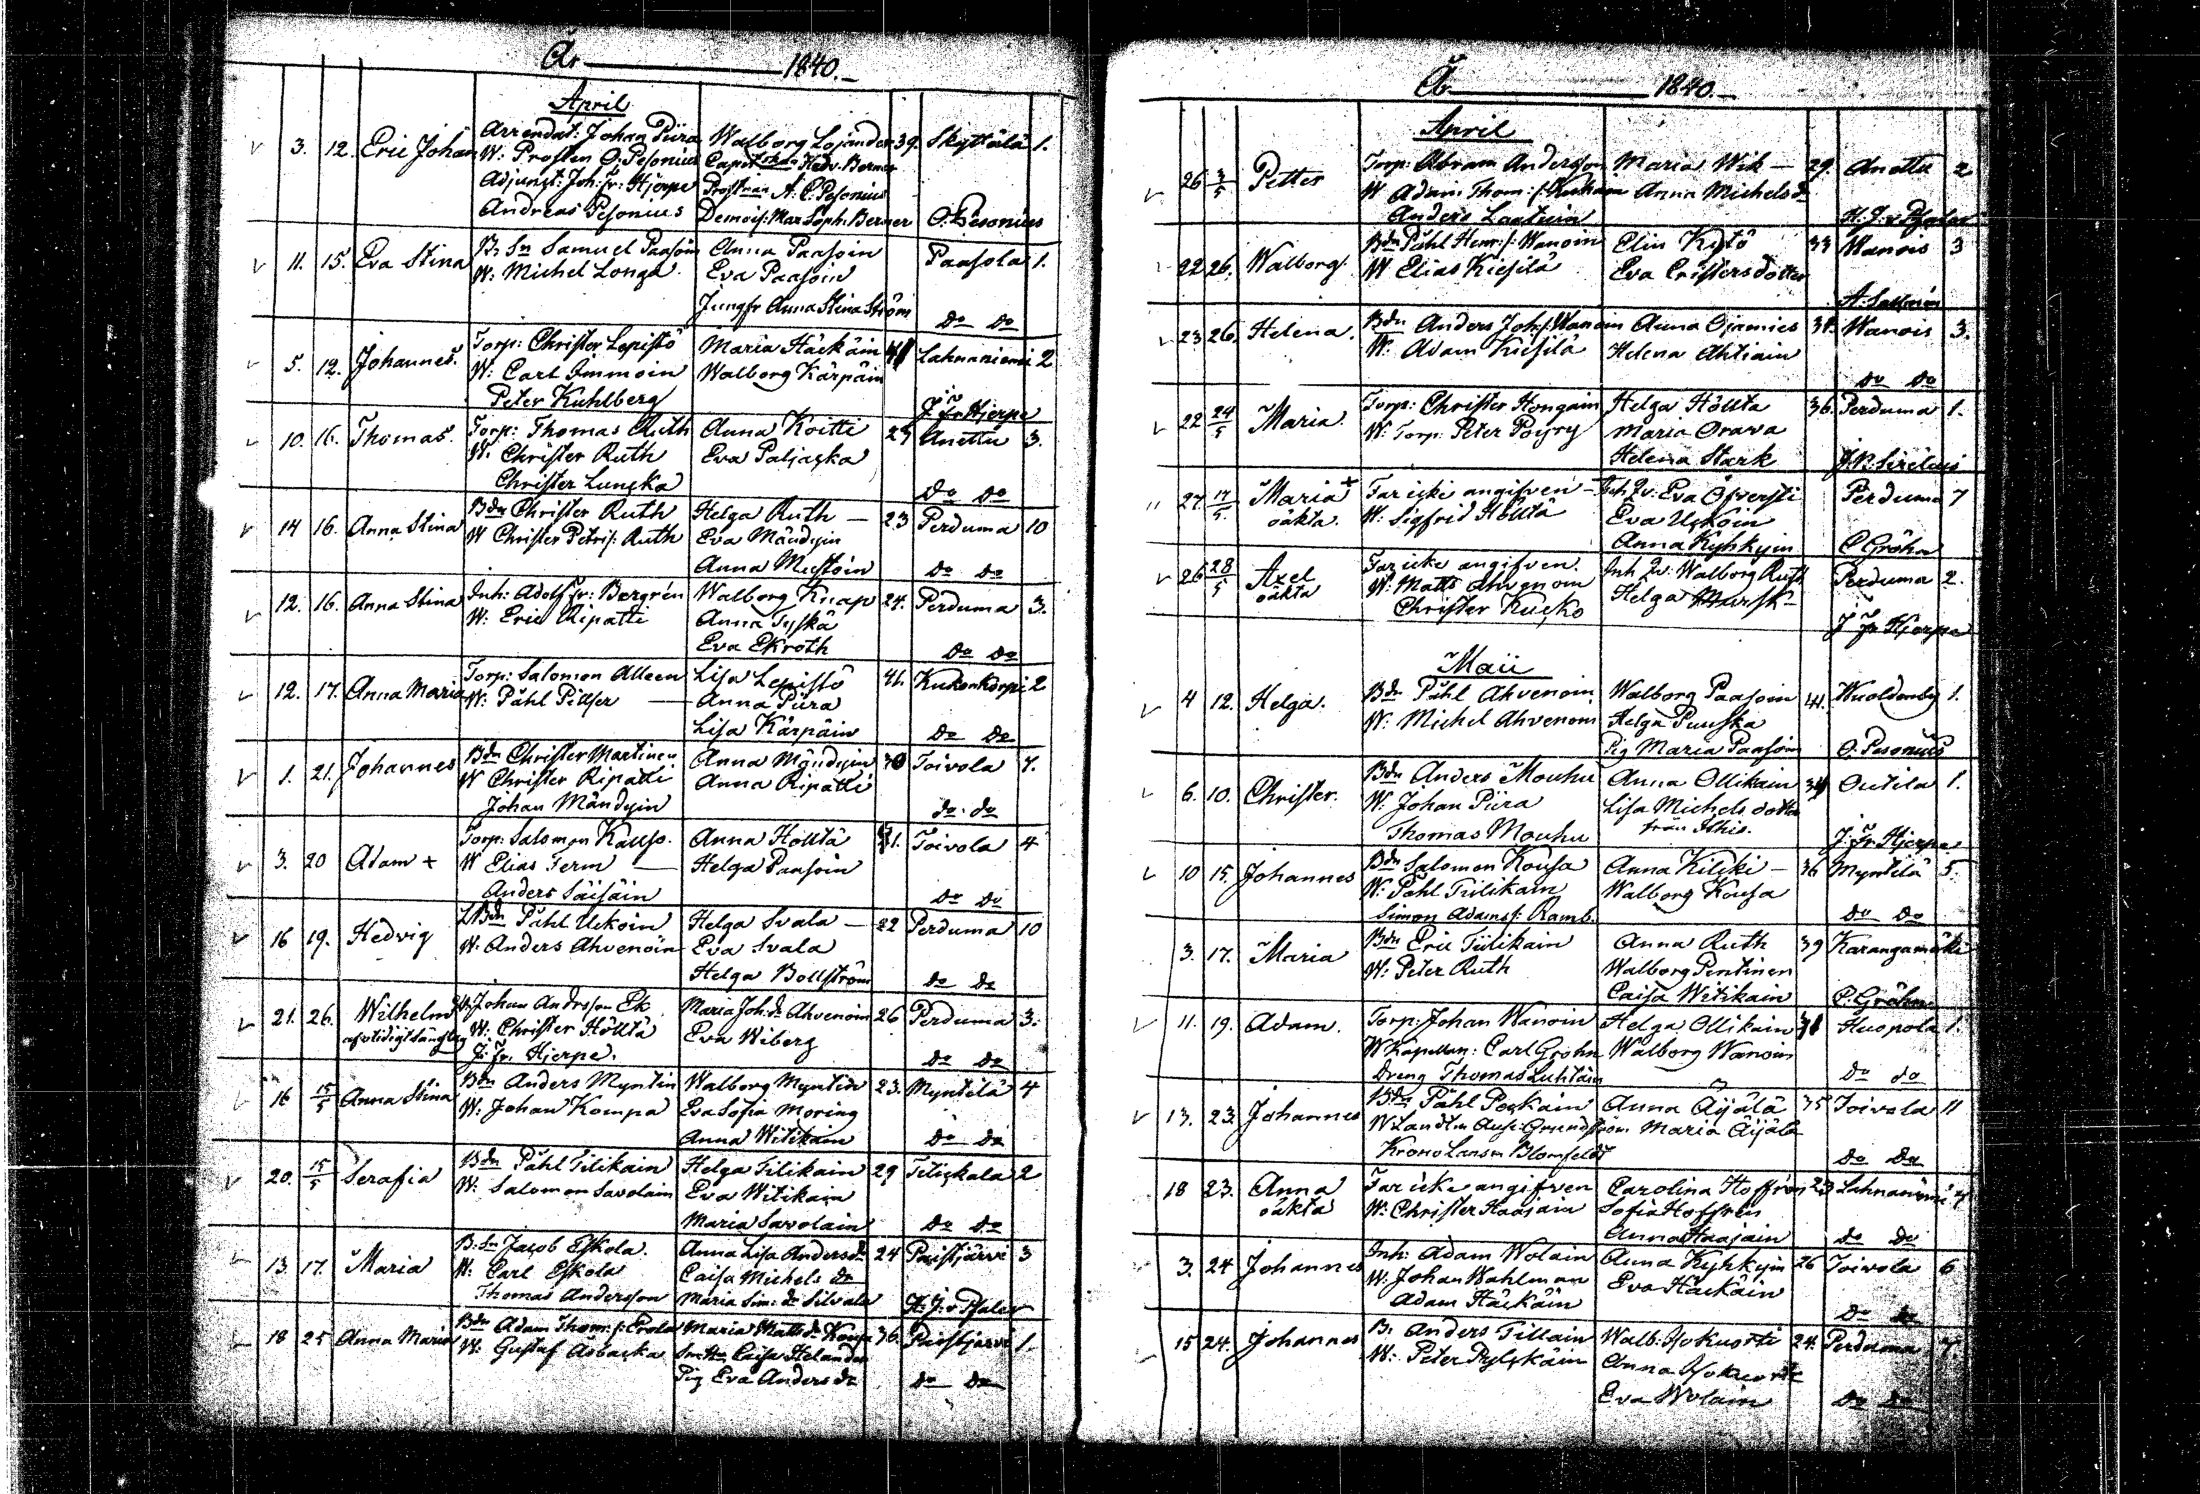 År 1840.
April
3. 12. Eric Johan Arrendat: Johan Piira Walborg Lojander 39. Skyttälä 1.
W: Prosten O: Pesonius Hedv. Berner
Adjunct: Joh: Fr: Hjerpe A: C. Pesonius
Andreas Pesonius Demois: Mar. Soph. Berner O. Pesonius
11. 15. Eva Stina B: Sn Samuel Paasoin Anna Paasoin Paasola 1.
W: Michel Longa Eva Paasoin
Jungfr Anna Stina Ström Do Do
5. 12. Johannes. Torp: Christer Lepistö Maria Häckäin 41 Lahnaniemi 2
W: Carl Immoin Walborg Kärpäin
Peter Kuhlberg J Fr Hjerpe
10. 16. Thomas. Torp: Thomas Ruth Anna Koitti 29 Anettu 3.
W. Christer Ruth Eva Paljacka
Christer Luncka Do Do
14 16. Anna Stina Bdn Christer Ruth Helga Ruth — 23 Perduma 10
W Christer Petris: Ruth Eva Mändyin
Anna Mustoin Do Do
12. 16. Anna Stina Inh: Adolf Fr: Bergrén Walborg Knap 24. Perduma 3.
W: Eric Ripatti Anna Tyskä
Eva Ekroth Do Do
12. 17. Anna Maria Torp: Salomon Alleen Lisa Lepistö 41. Kukonkorpi 2
W: Påhl Pillser — Anna Piira
Lisa Kärpäin Do Do
1. 21. Johannes Bdn Christer Martinen Anna Mändyin 30 Toivola 7.
W Christer Ripatti Anna Ripatti
Johan Mändyin do. do
3. 20 Adam + Torp: Salomon Kauso. Anna Hölttä 31. Toivola 4
W Elias Term — Helga Paasoin
Anders Säisäin Do Do
16 19. Hedvig LBdn Påhl Uckoin Helga Svala — 22 Perduma 10
W: Anders Ahvenoin Eva Svala
Helga Bollström Do Do
21. 26. Wilhelm Johan Andrsson Ek Maria Joh: dr Ahvenoin 26 Perduma 3.
W: Christer Hölttä Eva Wiberg
J: Fr. Hjerpe. Do Do
16 15/5 Anna Stina Bdn Anders Myntin Walborg Myntin 23. Myntilä 4
W. Johan Kompa Eva Sofia Moring
Anna Witikain Do Do
20. 15/5 Serafia Bdn Påhl Tilikain Helga Tilikain 29 Tilickala 2
W: Salomon Savolain Eva Witikain
Maria Savolain Do Do
13. 17. Maria B: Sn Jacob Eskola. Anna Lisa Anders dr 24 Puistjärvi 3
W: Carl Eskola Caisa Michels dr
Thomas Andersson Maria Sim: dr Silvala H: J: v Pfaler
18 25 Anna Maria Bdn Adam Thom: s: Erola Maria Matts dr 36. Puistjärvi 1.
W: Gustaf Åsbacka Caisa Helander
Pig Eva Anders dr Do Do
År 1840.
April
26 3/5 Petter Torp: Abram Andersson Maria Wik — 29. Anettu 2
W Adam Thom: s: Anna Michelsdr
Anders H. J. v Pfaler
22 26. Walborg. Bdn Påhl Henr: s: Wanoin Elin Kytö 33 Wanois 3
W Elias Kiesilä Eva Cristersdotter
A. Sallmén
23 26. Helena. Bdn Anders Joh: s: Wanoin Anna Ojamies 38. Wanois 3.
W: Adam Kiesilä Helena Ahtiain
do do
22 24/5 Maria. Torp: Christer Hongain Helga Hölttä 36. Perduma 1.
W: Torp: Peter Pöyry Maria Orava
Helena Stark
27. 17/5. Maria + Far icke angifven — Inh Qv: Eva Öfversti Perduma 7
oäkta. W: Sigfrid Hölttä Eva Uckoin
Anna Kyhkyin C Gröhn
26 28/5 Axel Far icke angifven. Inh Qv: Walborg Ruth Perduma 2.
oäkta W: Matts Ahvenoin Helga
Christer Kucko J Fr Hjerpe
Maii
4 12. Helga. Bdn Påhl Ahvenoin Walborg Paasoin 41. 1.
W: Michel Ahvenoin Helga Puuska
Pig Maria Paasoin O. Pesonius
6. 10. Christer. Bdn Anders Mouhu Anna Ollikain 34 Outila 1.
W: Johan Piira Lisa Michels dotter
Thomas Mouhu från J. Fr Hjerpe
10 15. Johannes Bdn Salomon Kousa Anna Kilcki — 36 Myntilä 5.
W: Påhl Tiilikain Walborg Kousa
Simon Adams s: Ramb. do do
3. 17. Maria Bdn Eric Tiilikain Anna Ruth 39 Karangamäki
W: Peter Ruth Walborg Pentinen
Caisa Witikain C. Gröhn
11. 19. Adam. Torp: Johan Wanoin Helga Ollikain 31 Huopola 1.
W Kapellan: Carl Grohn Walborg Wanoin
Dreng Thomas Luhtain Do do
13. 23. Johannes Bdn Påhl Peckain Anna Äijälä 35 Toivola 11
W Landtm Aug: Grundström Maria Äijälä
Krono Länsm Blomfeldt Do Do
18 23. Anna Far icke angifven Carolina Hoffrén 23 Lahnaniemi 7
oäkta W: Christer Haajain Sofia Hoffrén
Anna Haajain Do Do
3. 24 Johannes Inh: Adam Wolain Anna Kyhkyin 26 Toivola 6
W: Johan Wahlman Eva Häckäin
Adam Häckäin Do Do
15 24. Johannes B: Anders Tillain Walb. Isokuorti 24. Perduma 7
W: Peter Pylckäin Anna Isokuorti
Eva Wolain Do Do